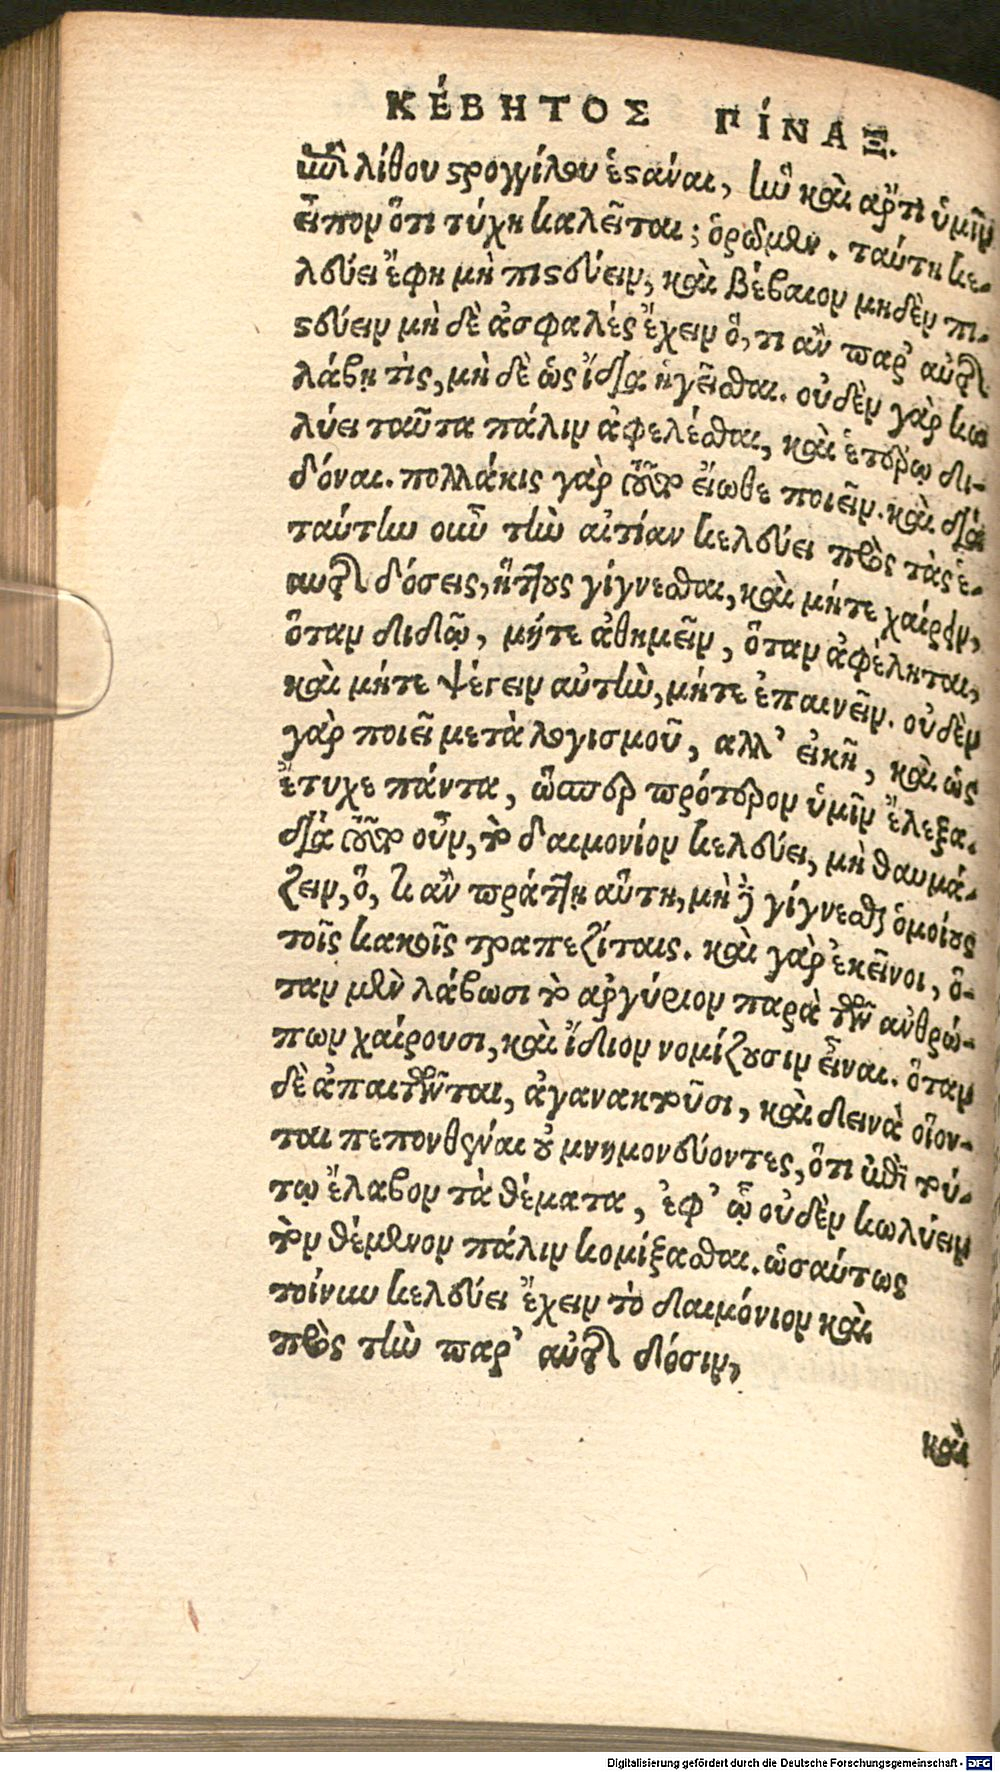 ΚΈΒΗΤΟΣ ΠΊΝΑΞ.
ἐπὶ λίθου στρογγίλου ἑστάναι, ἣν καὶ ἄρτι ὑμῖν
εἶπον ὅτι τύχη καλεῖται; ὁρῶμεν. ταύτῃ κε-
λεύει ἔφη μὴ πιστεύειν, καὶ βέβαιον μηδὲν πι-
στεύειν μὴ δὲ ἀσφαλὲς ἔχειν ὅ, τι ἂν παρ' αὐτῆς
λάβῃ τὶς, μὴ δὲ ὡς ἴδια ἡγεῖσθαι. οὐδὲν γὰρ κω
λύει ταῦτα πάλιν ἀφελέσθαι, καὶ ἑτέρῳ δι-
δόναι. πολλάκις γὰρ τοῦτο εἴωθε ποιεῖν. καὶ διὰ
ταύτην οὖν τὴν αἰτίαν κελεύει πρὸς τὰς ἑ-
αυτῆς δόσεις, ἥττους γίγνεσθαι, καὶ μήτε χαίρειν,
ὅταν διδῷ, μήτε ἀθημεῖν, ὅταν ἀφέληται,
καὶ μήτε ψέγειν αὐτὴν, μήτε ἐπαινεῖν. οὐδὲν
γὰρ ποιεῖ μετὰ λογισμοῦ, ἀλλ' εἰκῆ, καὶ ὡς
ἔτυχε πάντα, ὥσπερ πρότερον ὑμῖν ἔλεξα.
διὰ τοῦτο οὖν, τὸ δαιμονίον κελεύει, μὴ θαυμά-
ζειν, ὅ, τι ἂν πράττῃ αὕτη, μὴ δὲ γίγνεσθαι ὁμοίους
τοῖς κακοῖς τραπεζίταις. καὶ γὰρ ἐκεῖνοι, ὅ-
ταν μὲν λάβωσι τὸ ἀργύριον παρὰ τῶν ἀνθρώ-
πων χαίρουσι, καὶ ἴδιον νομίζουσιν εἶναι. ὅταν
δὲ ἀπαιτῶνται, ἀγανακτοῦσι, καὶ δεινὰ οἴον-
ται πεπονθέναι οὐ μνημονεύοντες, ὅτι ἐπὶ τού-
τῳ ἔλαβον τὰ θέματα, ἐφ' ᾧ οὐδὲν κωλύειν
τὸν θέμενον πάλιν κομίξασθαι. ὡσαύτως
τοίνυν κελεύει ἔχειν τὸ δαιμόνιον καὶ
πρὸς τὴν παρ' αὐτῆς δόσιν,
καὶ
Digitalisierung gefördert durch die Deutsche Forschungsgemeinschaft - DFG